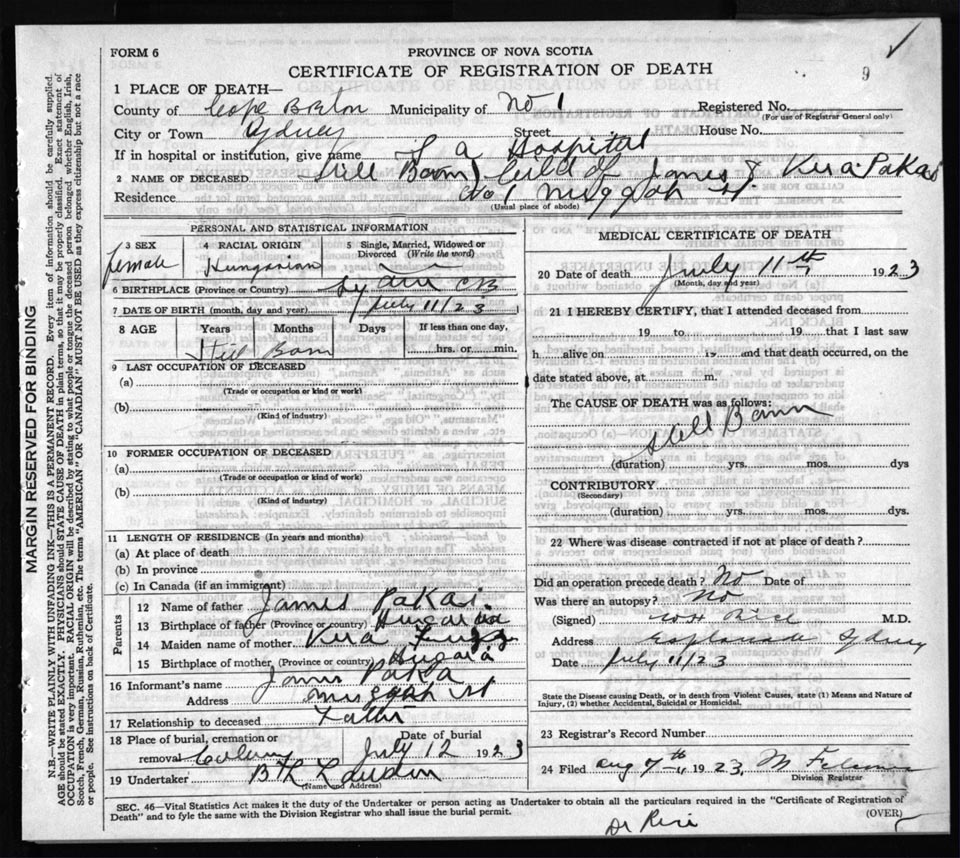 FORM 6
PROVINCE OF NOVA SCOTIA
CERTIFICATE OF REGISTRATION OF DEATH
9
1 PLACE OF DEATH—
County of Cape Breton Municipality of No 1 Registered No.
(For use of Registrar General only)
City or Town Sydney Street House No.
If in hospital or institution, give name Hospital
2 NAME OF DECEASED Still Born Child of James & Kera Pakai
Residence No 1 Muggah St.
(Usual place of abode)
PERSONAL AND STATISTICAL INFORMATION
3 SEX 4 RACIAL ORIGIN 5 Single, Married, Widowed or Divorced (Write the word)
female Hungarian
6 BIRTHPLACE (Province or Country) CB
7 DATE OF BIRTH (month, day and year) July 11/23
8 AGE Years Months Days If less than one day,
Still Born hrs. or min.
9 LAST OCCUPATION OF DECEASED
(a)
(Trade or occupation or kind or work)
(b)
(Kind of industry)
10 FORMER OCCUPATION OF DECEASED
(a)
(Trade or occupation or kind of work)
(b)
(Kind of industry)
11 LENGTH OF RESIDENCE (In years and months)
(a) At place of death
(b) In province
(c) In Canada (if an immigrant)
Parents
12 Name of father James Pakai
13 Birthplace of father (Province or country)
14 Maiden name of mother Kera
15 Birthplace of mother (Province or country)
16 Informant's name
Address Muggah St
17 Relationship to deceased Father
18 Place of burial, cremation or removal Date of burial July 12 1923
19 Undertaker
(Name and Address)
MEDICAL CERTIFICATE OF DEATH
20 Date of death July 11th 1923
(Month, day and year)
21 I HEREBY CERTIFY, that I attended deceased from
19 to 19 that I last saw
h alive on 19 and that death occurred, on the
date stated above, at m.
The CAUSE OF DEATH was as follows:
Still Born
(duration) yrs. mos. dys
CONTRIBUTORY
(Secondary)
(duration) yrs. mos. dys.
22 Where was disease contracted if not at place of death?
Did an operation precede death? No Date of
Was there an autopsy? No
(Signed) M.D.
Address Esplanade Sydney
Date July 11/23
State the Disease causing Death, or in death from Violent Causes, state (1) Means and Nature of Injury, (2) whether Accidental, Suicidal or Homicidal.
23 Registrar's Record Number
24 Filed Aug 7th 1923,
Division Registrar
SEC. 46—Vital Statistics Act makes it the duty of the Undertaker or person acting as Undertaker to obtain all the particulars required in the "Certificate of Registration of
Death" and to fyle the same with the Division Registrar who shall issue the burial permit. (OVER)
MARGIN RESERVED FOR BINDING
N.B.—WRITE PLAINLY WITH UNFADING INK—THIS IS A PERMANENT RECORD. Every item of information should be carefully supplied.
AGE should be stated EXACTLY. PHYSICIANS should STATE CAUSE OF DEATH in plain terms, so that it may be properly classified. Exact statement of
OCCUPATION is very important. RACIAL ORIGIN will be described by stating to what people or tongue the deceased person belonged, whether English, Irish,
Scotch, French, German, Russian, Ruthenian, etc. The terms "AMERICAN" OR "CANADIAN" MUST NOT BE USED as they express citizenship but not a race
or people. See instructions on back of Certificate.